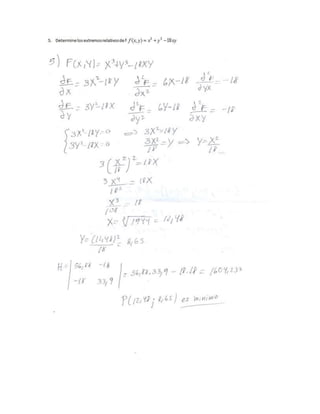 5. Determine los extremos relativos de f f(x,y) = x³ + y³ − 18xy
5) F(X,Y) = X³+Y³-18XY
∂F/∂X = 3X²-18Y ∂²F/∂X² = 6X-18 ∂²F/∂YX = -18
∂F/∂Y = 3Y²-18X ∂²F/∂Y² = 6Y-18 ∂²F/∂XY = -18
{3X²-18Y=0 ⇒ 3X²=18Y
{3Y²-18X=0 3X²/18 = Y ⇒ Y= X²/18
3(X²/18)² = 18X
3 X⁴/18² = 18X
X³/108 = 18
X= ∛1944 = 12,48
Y= (12,48)²/18 = 8,65
H = |56,88 -18| = 56,88.33,9 - 18.18 = 1604,232
|-18 33,9|
P(12,48; 8,65) es minimo